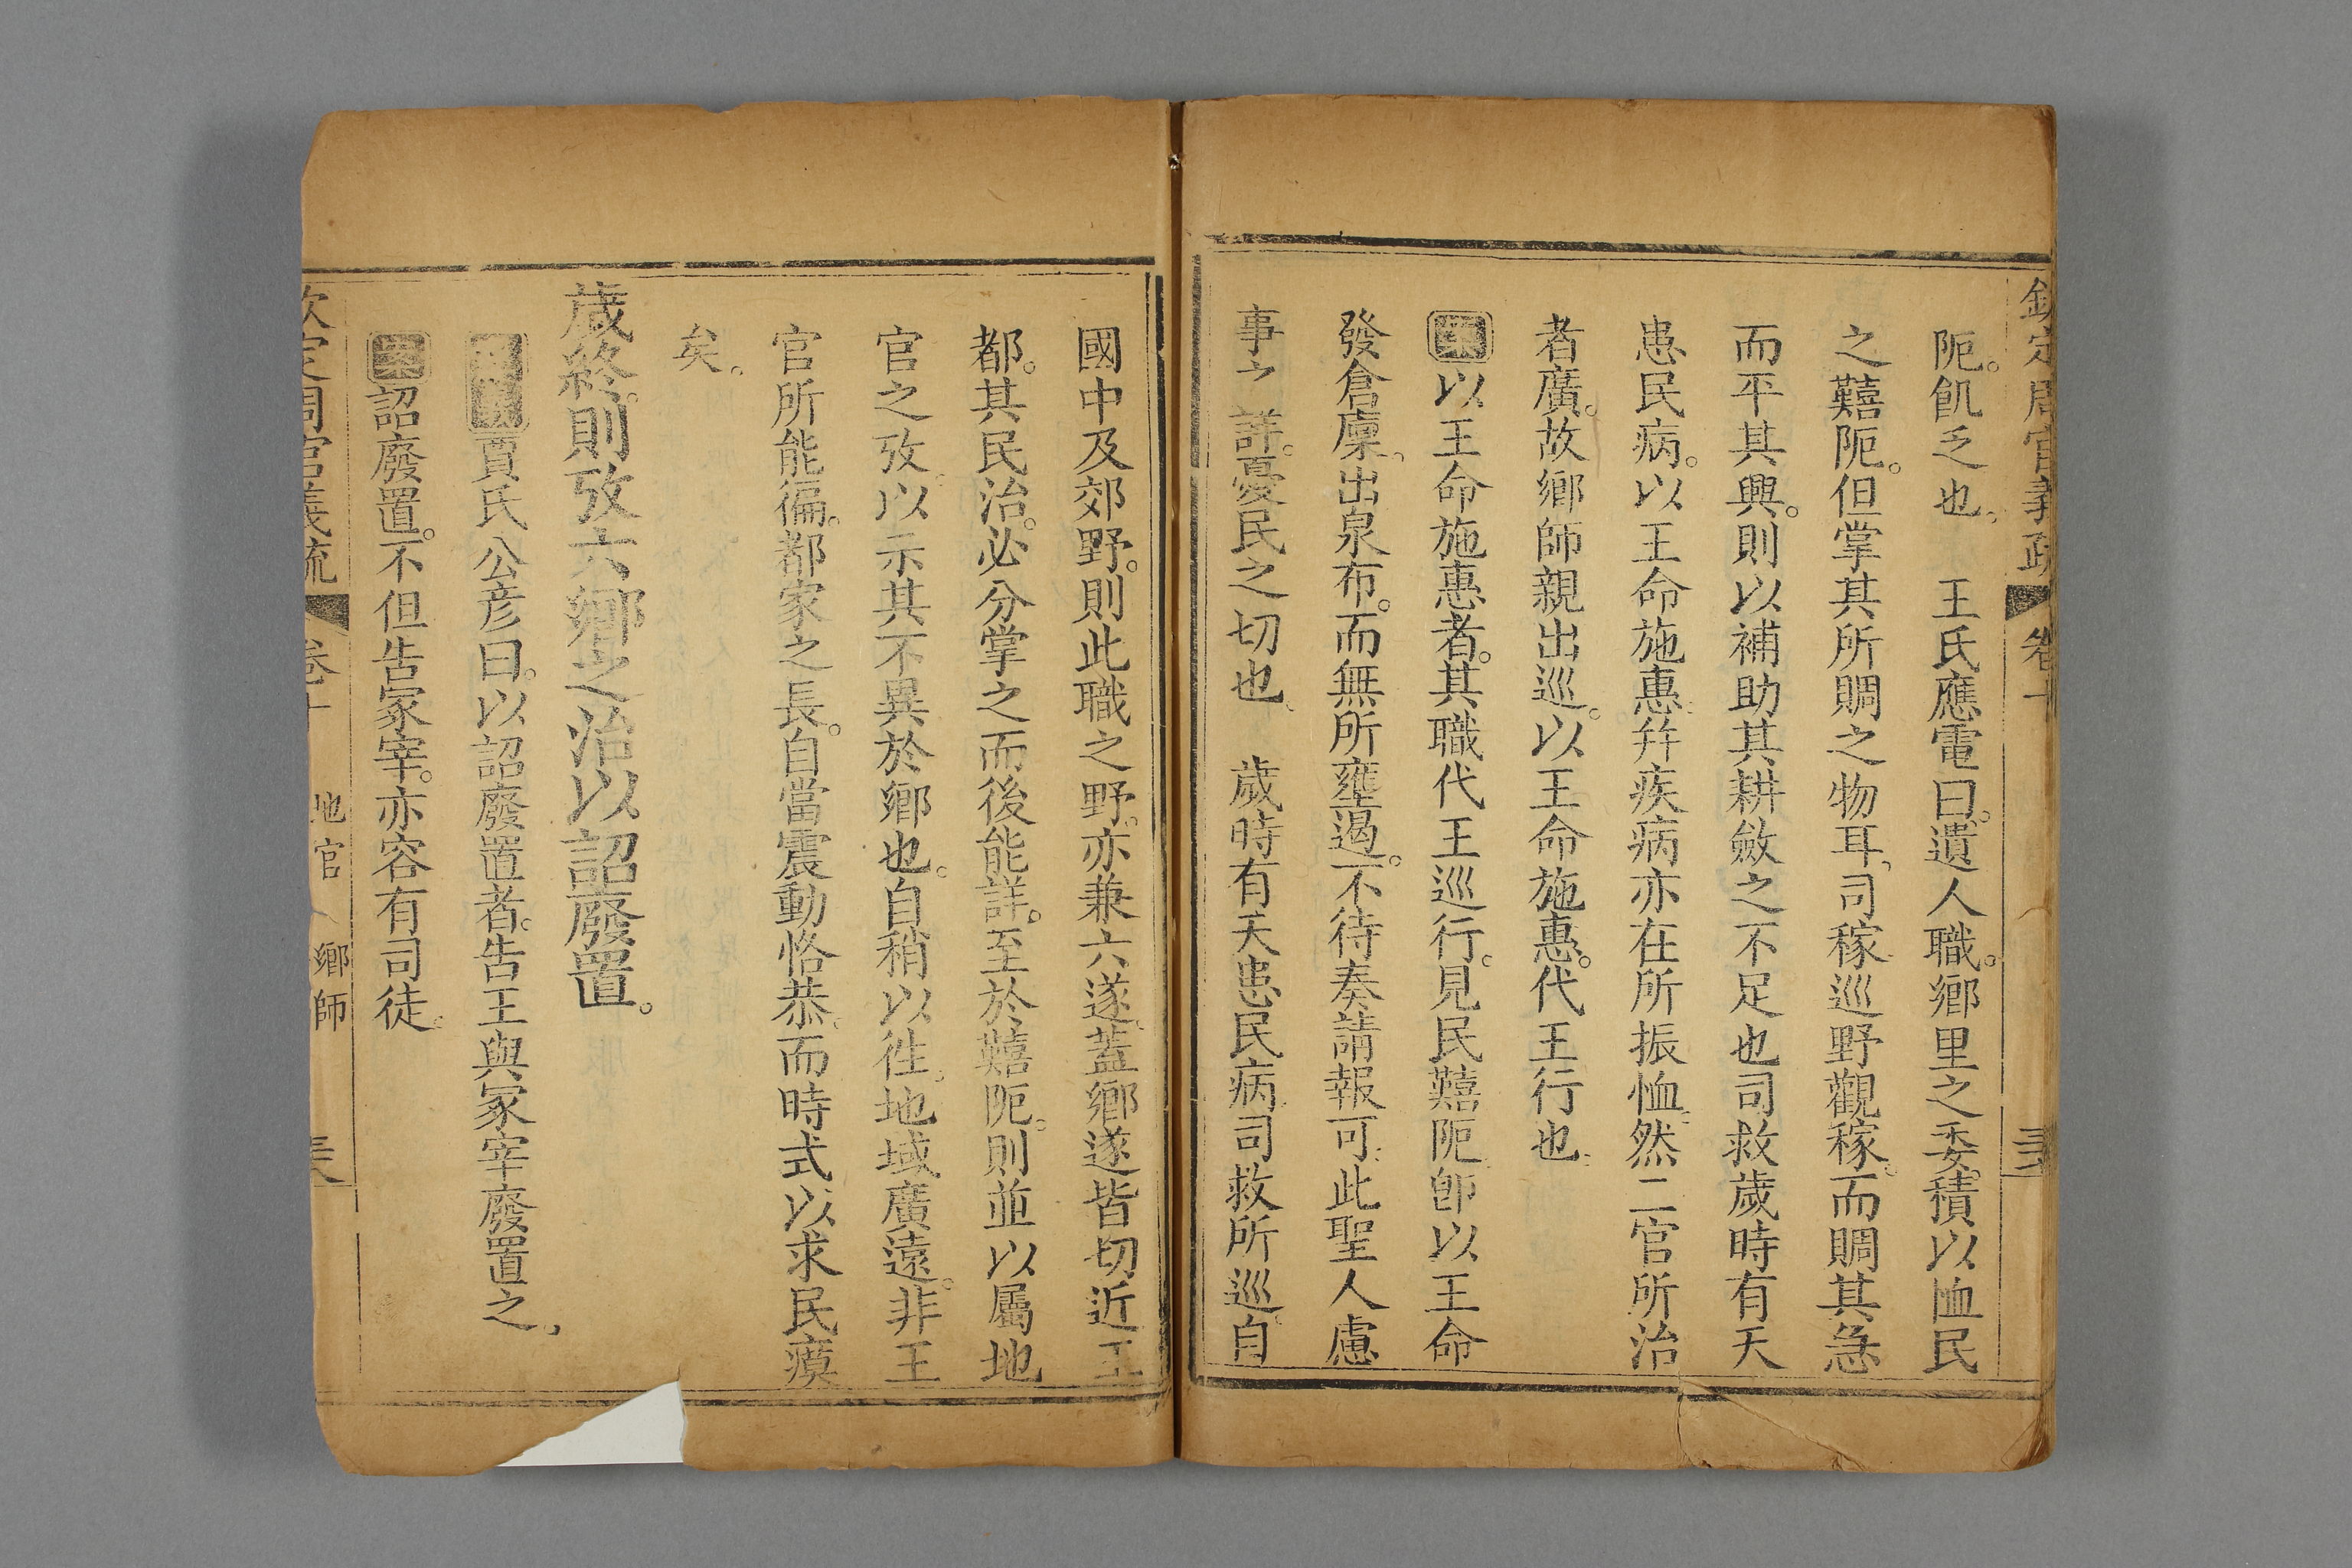 欽定周官義疏 卷十
阨。飢乏也。 王氏應電曰。遺人職。鄉里之委積以恤民
之囏阨。但掌其所賙之物耳、司稼巡野觀稼。而賙其急
而平其興。則以補助其耕斂之不足也司救歲時有天
患民病。以王命施惠。幷疾病亦在所振恤。然二官所治
者廣。故鄉師親出巡。以王命施惠。代王行也。
案以王命施惠者。其職代王巡行。見民囏阨卽以王命
發倉廩、出泉布。而無所壅遏。不待奏請報可。此聖人慮
事之詳。憂民之切也。 歲時有天患民病司救所巡自
國中及郊野。則此職之野。亦兼六遂。蓋鄉遂皆切近王
都。其民治。必分掌之而後能詳。至於囏阨。則並以屬地
官之攷。以示其不異於鄉也。自稍以徃。地域廣遠。非王
官所能徧。都家之長。自當震動恪恭。而時式以求民瘼
矣。
歲終。則攷六鄉之治以詔廢置。
賈氏公彦曰。以詔廢置者。告王與冢宰廢置之、
案詔廢置。不但告冢宰。亦容有司徒。
欽定周官義疏 卷十 地官 鄉師